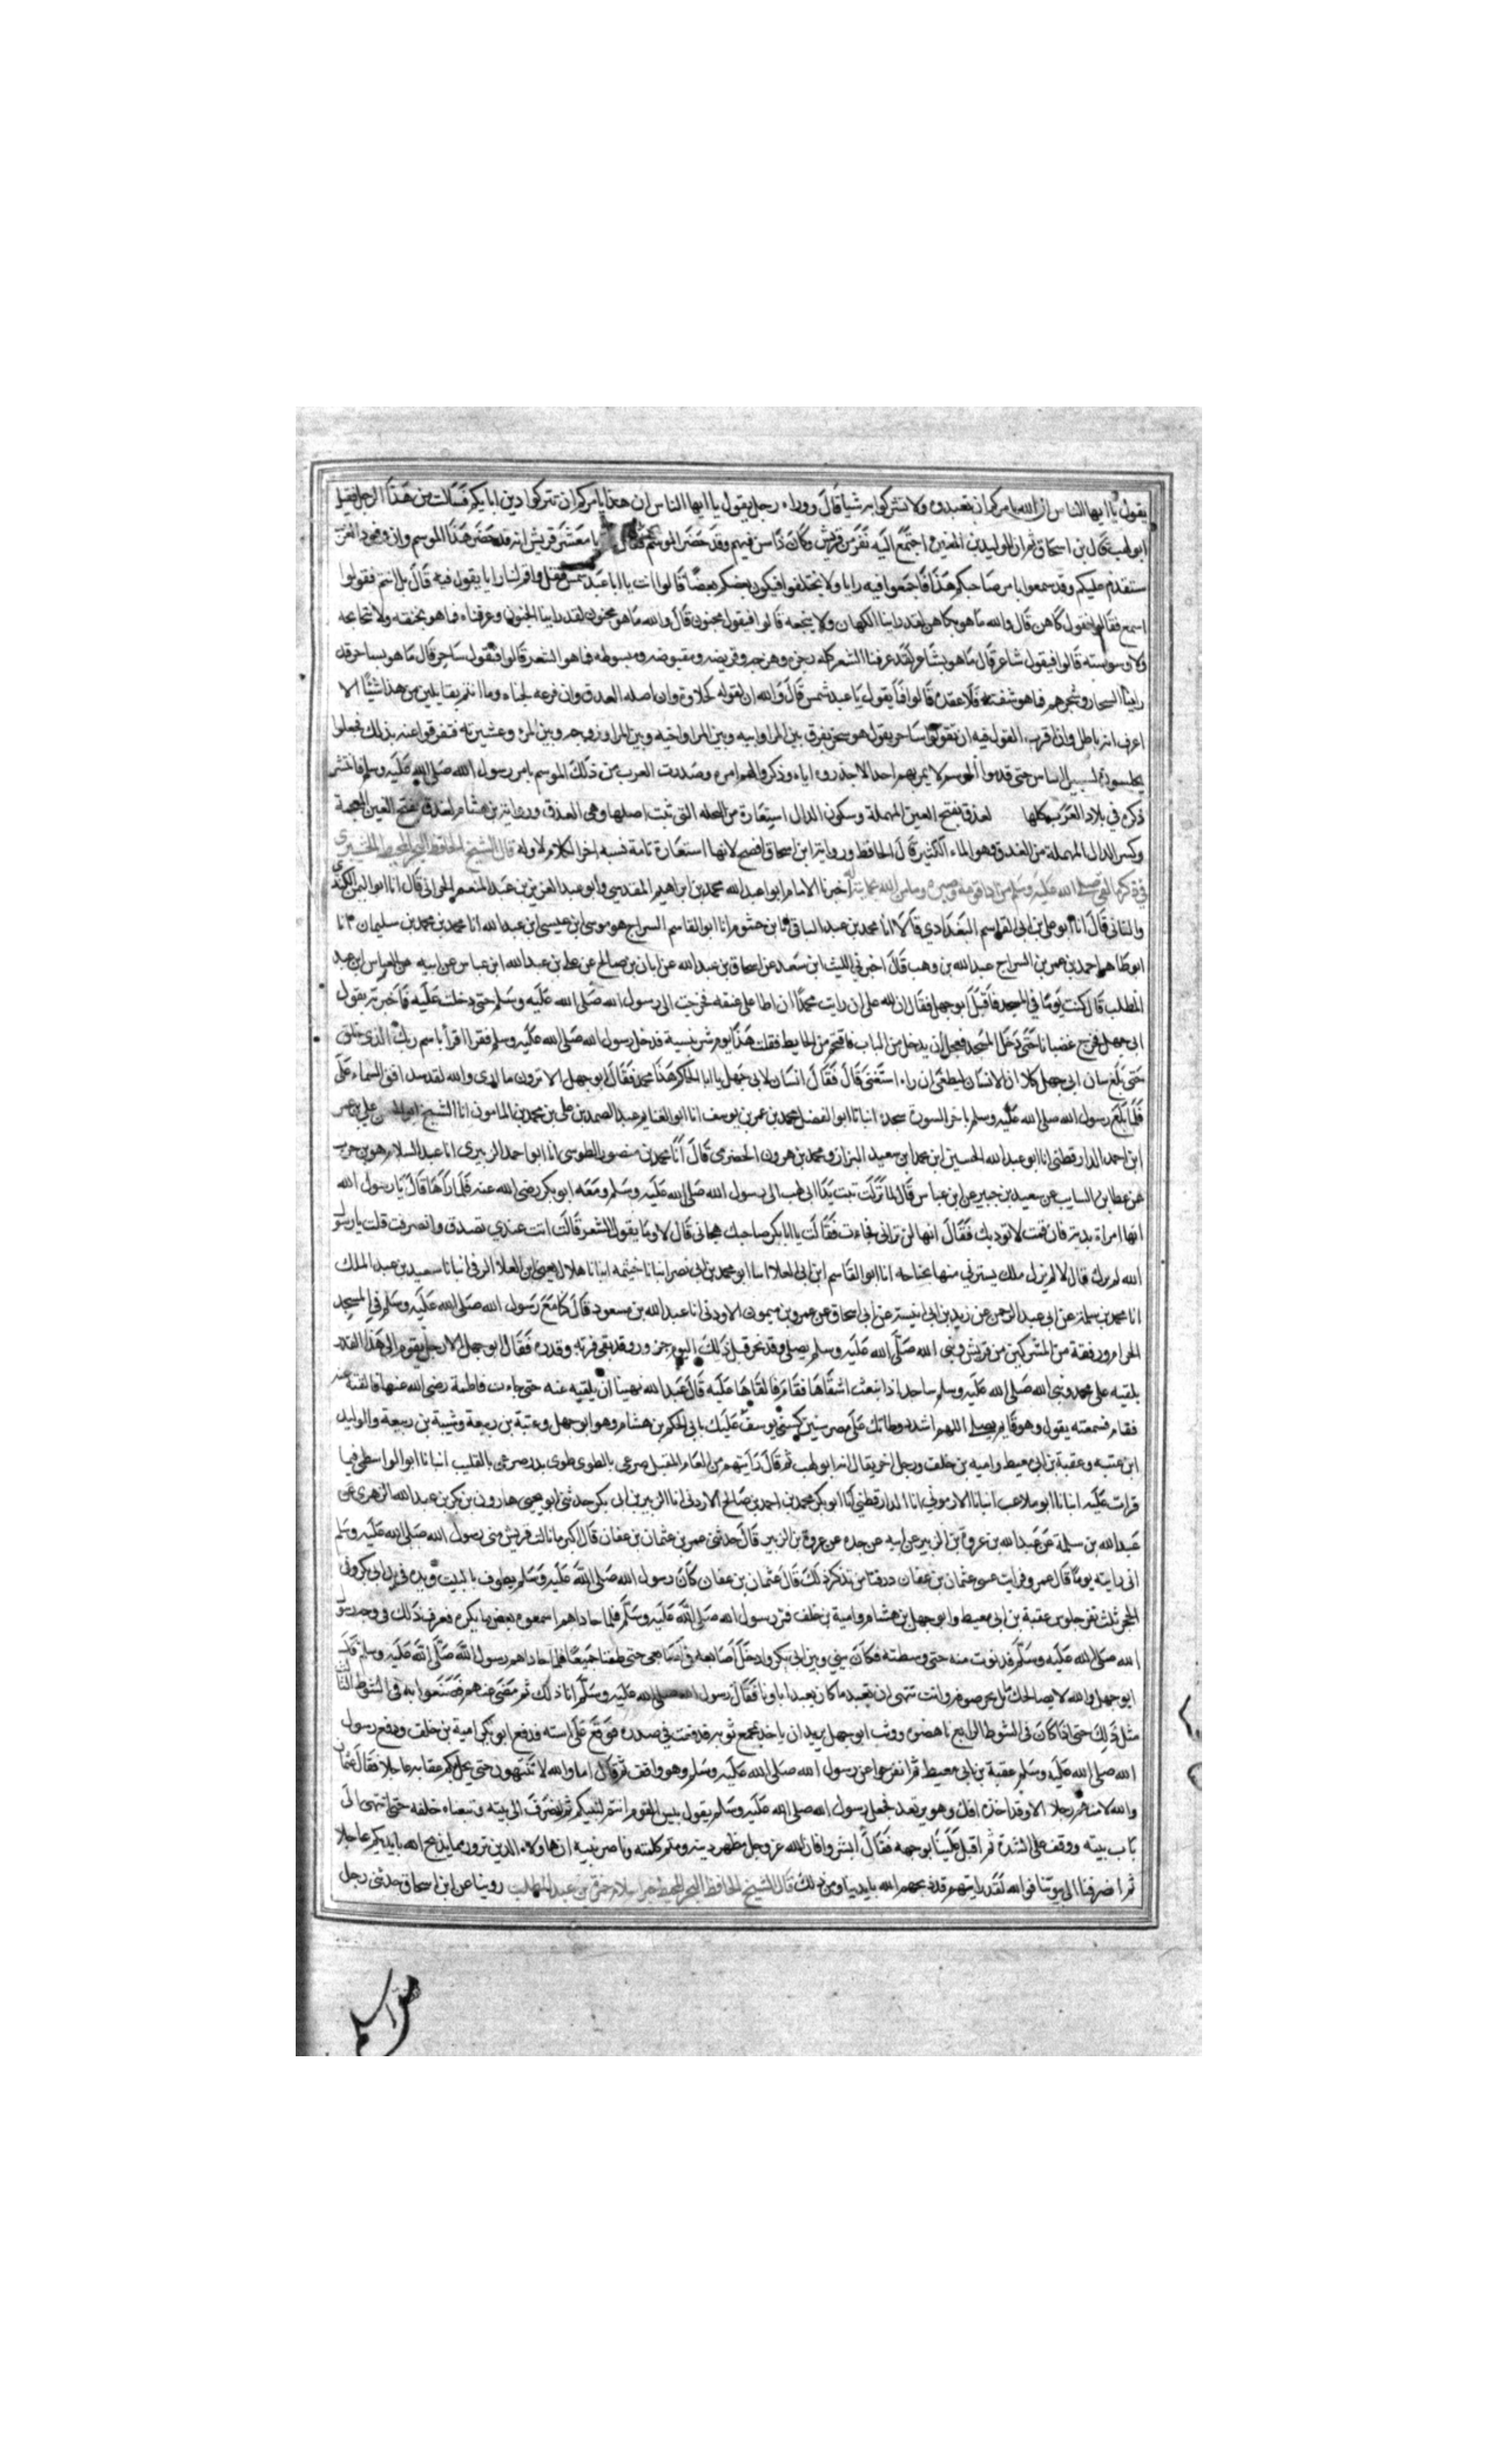 يقول يا ايها الناس ان الله يامركم ان تعبدوه ولا تشركوا به شيا قال ووراء رجل يقول يا ايها الناس ان هذا يامركم ان تتركوا دين ابايكم فسالت من هذا الرجل فقيل
ابو لهب قال بن اسحاق ثم ان الوليد بن المغيرة اجتمع اليه نفر من قريش وكان ذا سن فيهم وقد حضر الموسم فقال يا معشر قريش انه قد حضر هذا الموسم وان وفود العرب
ستقدم عليكم وقد سمعوا بامر صاحبكم هذا فاجمعوا فيه رايا ولا تختلفوا فيكون بعضكم بعضا قالوا انت يا ابا عبد شمس فقل واقم لنا رايا يقول فيه قال بل انتم فقولوا
اسمع فقالوا نقول كاهن قال والله ما هو بكاهن لقد راينا الكهان ولا بسجعه قالوا فيقول مجنون قال والله ما هو بمجنون لقد راينا الجنون وعرفناه فما هو بخنقه ولا تخالجه
ولا وسوسته قالوا فيقول شاعر قال ما هو بشاعر لقد عرفنا الشعر كله رجزه وهزجه وقريضه ومقبوضه ومبسوطه فما هو الشعر قالوا فنقول ساحر قال ما هو بساحر قد
راينا السحار وسحرهم فما هو بنفثه ولا عقده قالوا فما يقول يا عبد شمس قال والله ان لقوله لحلاوة وان اصله لعذق وان فرعه لجناه وما انتم بقايلين من هذا شيئا الا
اعرف انه باطل وان اقرب القول فيه ان تقولوا ساحر يقول هو سحر يفرق بين المرا وابيه وبين المرا واخيه وبين المرا وزوجه وبين المرء وعشيرته فتفرقوا عنه بذلك فجعلوا
يجلسون بسبيل الناس حتى قدموا الموسم لا يمر بهم احد الا حذروه اياه وذكروا لهم امره وصدرت العرب من ذلك الموسم بامر رسول الله صلى الله عليه وسلم فانتشر
ذكره في بلاد العرب كلها لعذق بفتح العين المهملة وسكون الدال استعارة من النخله التي ثبت اصلها وهي العذق ورواية بن هشام لغدق بفتح الغين المعجمة
وكسر الدال المهملة من الغدق وهو الماء الكثير قال الحافظ ورواية ابن اسحاق افصح لانها استعارة تامة تشبه اخر الكلام لاوله قال الشيخ الحافظ
اخبرنا الامام ابو عبد الله محمد بن ابراهيم المقدسي وابو عبد العزيز بن عبد المنعم الحراني قال انا ابو اليمن الكندي
والثاني قال انا ابو علي بن ابي القاسم البغدادي قالا انا محمد بن عبد الباقي انا ابو القاسم السراج هو موسى ابن عيسى ابن عبد الله انا محمد بن محمد بن سليمان
ابو طاهر احمد بن عمر بن السراج عبد الله بن وهب قال اخبرني الليث ابن سعد عن اسحاق بن عبد الله عن ابان بن صالح عن علي بن عبد الله ابن عباس عن ابيه عن العباس ابن عبد
المطلب قال كنت يوما في المسجد فاقبل ابو جهل فقال ان لله علي ان رايت محمدا ان اطا على عنقه فخرجت الى رسول الله صلى الله عليه وسلم حتى دخلت عليه فاخبرته بقول
ابي جهل فخرج غضبانا حتى دخل المسجد فعجل ان يدخل من الباب فاقتحم من الحايط فقلت هذا يوم شر فدخل رسول الله صلى الله عليه وسلم فقرا اقرأ باسم ربك الذي خلق
حتى بلغ شان ابي جهل كلا ان الانسان ليطغى ان راه استغنى قال فقال انسان لابي جهل يا ابا الحكم هذا محمد فقال ابو جهل الا ترون ما ارى والله لقد سد افق السماء علي
فلما بلغ رسول الله صلى الله عليه وسلم باخر السورة سجد انبانا ابو الفضل محمد بن عمر بن يوسف انا ابو الغنايم عبد الصمد بن علي بن محمد بن المامون انا الشيخ ابو الحسن علي بن عمر
ابن احمد الدارقطني انا ابو عبد الله الحسين ابن محمد ابن سعيد البزاز ومحمد بن هرون الحضرمي قال انا محمد بن منصور الطوسي انا ابو احمد الزبيري انا عبد السلام هو بن حرب
عن عطا بن السايب عن سعيد بن جبير عن ابن عباس قال لما نزلت تبت يدا ابي لهب الى رسول الله صلى الله عليه وسلم ومعه ابو بكر رضي الله عنه فلما راها قال يا رسول الله
انها امراة بذية فان قمت لا توذيك فقال انها لن تراني فجاءت فقالت يا ابا بكر صاحبك هجاني قال لا وما يقول الشعر قالت انت عندي تصدق وانصرفت قلت يا رسول
الله لم ترك قال لا لم يزل ملك يسترني منها بجناحه انا ابو القاسم ابن ابي العلا انا ابو محمد بن ابي نصر انبانا خيثمه انبانا هلال يعني ابن العلا الرقي انبانا سعيد بن عبد الملك
انا محمد بن سلمة عن ابي عبد الرحمن عن زيد بن ابي انيسة عن ابي اسحاق عن عمرو بن ميمون الاودي انا عبد الله بن مسعود قال كنا مع رسول الله صلى الله عليه وسلم في المسجد
الحرام ورفقة من المشركين من قريش ونبي الله صلى الله عليه وسلم يصلي وقد نحر قبل ذلك اليوم جزور وقد بقي فرثه وقذره فقال ابو جهل الا رجل يقوم الى هذا القذر
يلقيه على محمد ونبي الله صلى الله عليه وسلم ساجد اذ انبعث اشقاها فقام فالقاها عليه قال عبد الله فهبنا ان يلقيه عنه حتى جاءت فاطمة رضي الله عنها فالقته عنه
فقام فسمعته يقول وهو قايم يصلي اللهم اشدد وطاتك على مضر سنين كسني يوسف عليك بابي الحكم بن هشام وهو ابو جهل وعتبة بن ربيعة وشيبة بن ربيعة والوليد
ابن عتبه وعقبة بن ابي معيط واميه بن خلف ورجل اخر يقال انه ابو لهب ثم قال رايتهم من العام المقبل صرعى بالطوى طوى بدر صرعى بالقليب انبانا ابو الواسطي فيما
قرات عليه انبانا ابو ملاعب انبانا الارموني انا الدارقطني انا ابو بكر محمد بن احمد بن صالح الازدي انا الزبير بن ابي بكر حدثني ابو يحيى هارون بن بكر بن عبد الله الزهري عن
عبد الله بن سلمة عن عبد الله بن عروة بن الزبير عن ابيه عن جده عن عروة بن الزبير قال حدثني عمر بن عثمان بن عفان قال اكبر ما نالت قريش من رسول الله صلى الله عليه وسلم
اني رايته يوما قال عمرو فرايت عثمان بن عفان ذرفتا من تذكر ذلك قال عثمان بن عفان كان رسول الله صلى الله عليه وسلم يطوف بالبيت ويده في يد ابي بكر وفي
الحجر ثلث نفر جلوس عقبة بن ابي معيط وابو جهل بن هشام وامية بن خلف فمر رسول الله صلى الله عليه وسلم فلما حاداهم اسمعوه بعض ما يكره فعرف ذلك في وجه رسول
الله صلى الله عليه وسلم فدنوت منه حتى وسطته فكان بيني وبين ابي بكر وادخل اصابعه في اصابعي حتى طفنا جميعا فلما حاداهم رسول الله صلى الله عليه وسلم قال
ابو جهل والله لا يصالحك بل بحر صوفه وانت تنهى ان نعبد ما كان يعبد اباونا فقال رسول الله صلى الله عليه وسلم انا ذلك ثم مضى عنهم فصنعوا به في الشوط الثالث
مثل ذلك حتى اذا كان في الشوط الرابع ناهضوه ووثب ابو جهل يريد ان ياخذ بمجمع ثوبه فدفعت في صدره فوقع على استه ودفع ابو بكر امية بن خلف ودفع رسول
الله صلى الله عليه وسلم عقبة بن ابي معيط ثم انفرجوا عن رسول الله صلى الله عليه وسلم وهو واقف ثم قال اما والله لا تنتهون حتى يحل بكم عقابه عاجلا فقال عثمان
والله ما منهم رجلا الا وقد اخذه افكل وهو يرتعد فجعل رسول الله صلى الله عليه وسلم يقول بيس القوم انتم لنبيكم ثم انصرف الى بيته وتبعناه خلفه حتى انتهى الى
باب بيته ووقف على السدة ثم اقبل علينا بوجهه فقال ابشروا فان الله عز وجل مظهر دينه ومتم كلمته وناصر نبيه ان هاولاء الدين ترون مما يذبح الله بايديكم عاجلا
ثم انصرفنا الى بيوتنا فوالله لقد رايتهم قد ذبحهم الله بايدينا ومن ذلك قال الشيخ الحافظ اسلام حمزة بن عبد المطلب روينا عن ابن اسحاق حدثني رجل
من اسلم